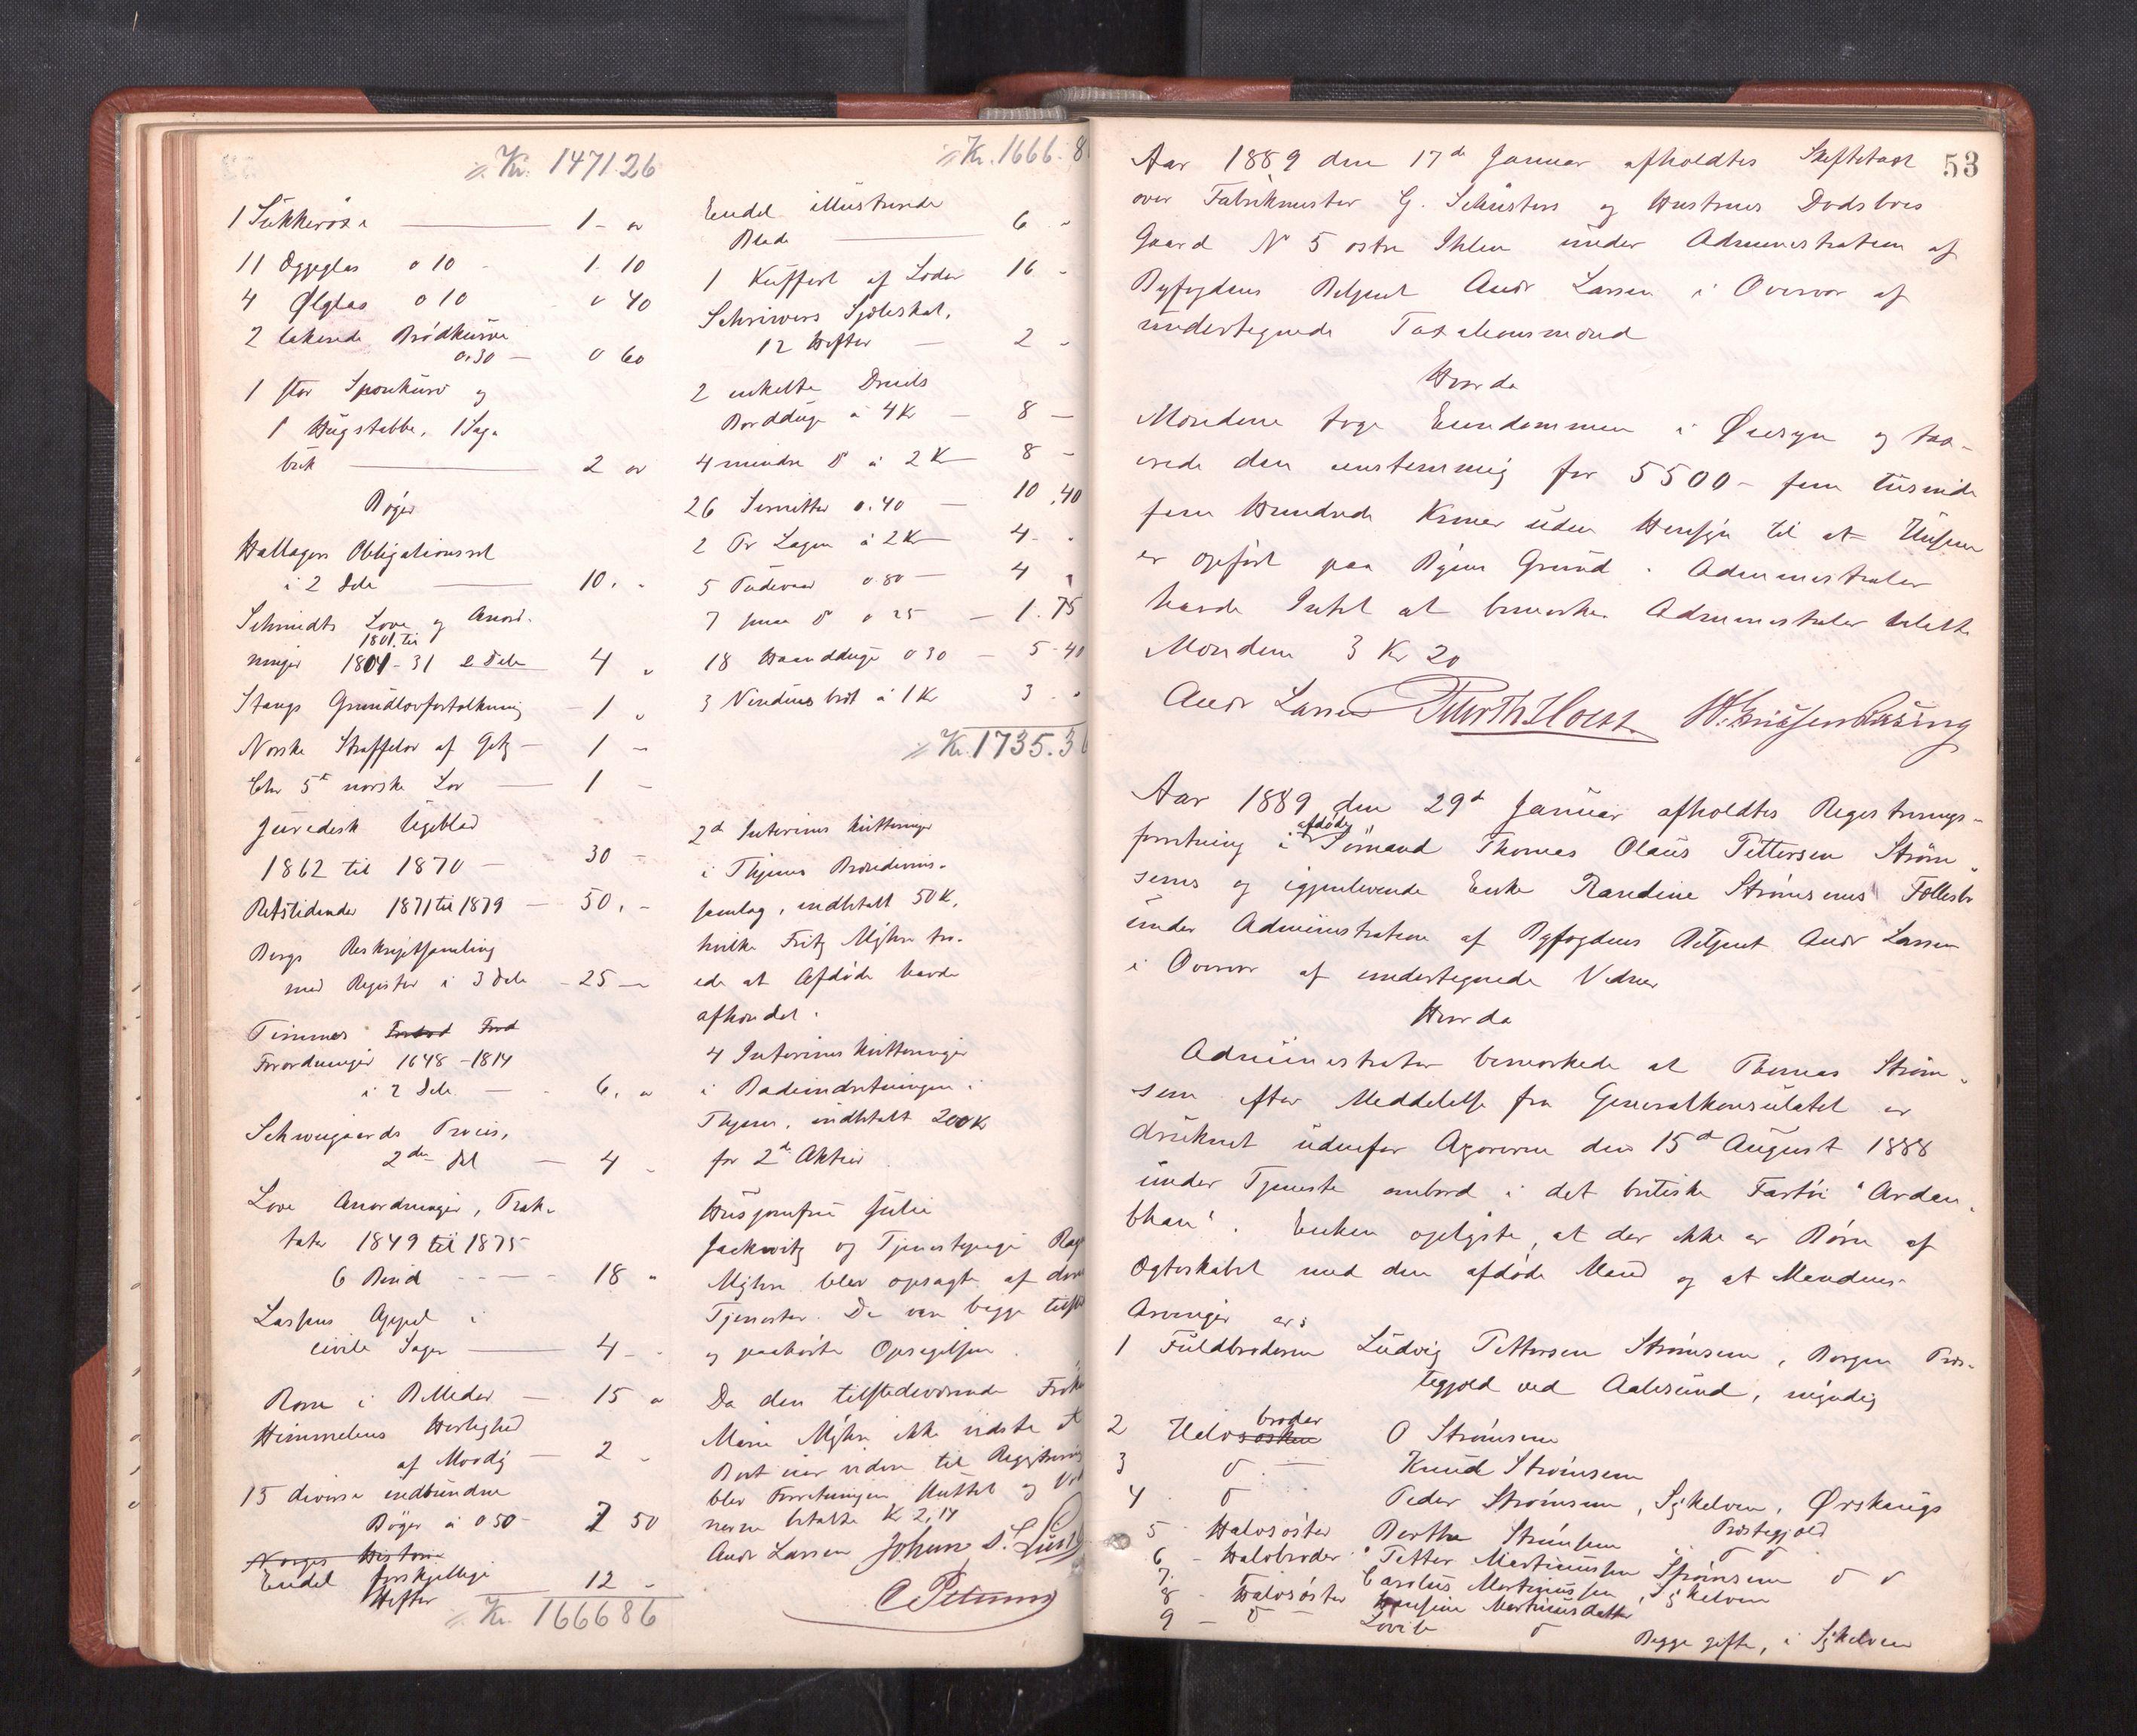 Kr. 1471.26
1 Sukkerøse 1 - "
11 Eggeglas o 10 - 1. 10
4 Ølglas o 10 " 40
2 lakerede Brødkurve
0.30 - 0 60
1 stor Sponkurv og
1 Hugstabbe, 1 Sag-
buk 2 "
Bøger
Hallagers Obligationsret
i 2 Dele 10. -
Schmidts Love og Anord-
1801 til
ninger 1801-31 2 Dele 4 "
Stangs Grundlovfortolkning - 1 "
Norske Straffelov af Getz - 1 -
Chr 5t norske Lov 1 -
Juridisk Ugeblad
1862 til 1870 - 30 -
Retstidender 1871 til 1879 - 50. -
Bergs Reskriptsamling
med Register i 3 Dele - 25 -
Timmes Forord Ford
Forordninger 1648-1814
i 2 Dele - 6. "
Schweigaards Proces,
2den Del - 4 -
Love Anordninger, Trak-
tater 1849 til 1875
6 Bind - - - - 18 "
Lassens Appel i
civile Sager 4 - -
Rom i Billeder - 15 "
Himmelens Herlighed
af Moody - 2 -
15 diverse indbundne
Bøger à 0 50 - 7 50
Norges Historie
Endel forskjellige
Hefter 12 -
Kr. 1666 86
Kr. 1666. 8
Endel illustrerede
Blade 6 -
1 Kuffert af Læder 16 -
Schrivers Sjæleskat,
12 Hefter - 2 -
2 enkelte Dreils
Borddug à 4 Kr - 8 -
4 mindre do à 2 Kr 8 -
26 Servietter 0.40 - 10.40
2 Pr Lagen à 2 Kr 4 - -
5 Pudevaar 0.80 - 4 "
7 smaa do 0 25 - 1.75
18 Haandduge 0 30 - 5-40
3 à 1 Kr 3 - "
Kr. 1735.3
2d Interims kvitteringer
i Thjems Brændevins-
samlag, indbetalt 50 K,
hvilke Fritz Myhre tro-
ede at Afdøde havde
afhændet.
4 Interimskvitteringer
i Badeindretningen i
Thjem, indbetalt 200 K
for 2de Aktier
Husjomfru Julie
Jackwitz og Tjenestepige Rag
Myhre blev opsagte af deres
Tjenester. De var begge tilste
og paahørte Opsigelsen.
Da den tilstedeværende Frøke
Marie Myhre ikke vidste at
Boet eier videre til Registrering
blev Forretningen sluttet og Vid
nerne betalte Kr 2,14
Andr Larsen Johan S. Lund
C Petersen
53
Aar 1889 den 17de Januar afholdtes Skiftetaxt
over Fabrikmester G. Schusters og Hustrues Dødsboes
Gaard No 5 østre Ihlen under Administration af
Byfogdens Betjent Andr Larsen i Overvær af
undertegnede Taxationsmænd
Hvor da
Mændene toge Eiendommen i Øiesyn og tax-
erede den enstemmig for 5500 - fem tusinde
fem Hundrede Kroner uden Hensyn til at Husene
er opført paa Byens Grund. Administrator
havde Intet at bemærke. Administrator betalte
Mændene 3 Kr 20
Andr Larsen
Aar 1889 den 29d Januar afholdtes Registrerings-
afdøde
forretning i Sømand Thomas Olaus Pettersen Strøm-
sems og igjenlevende Enke Randine Strømsems Fællesbo
under Administration af Byfogdens Betjent Andr Larsen
i Overvær af undertegnede Vidner
Hvor da
Administrator bemærkede at Thomas Strøm-
sem efter Meddelelse fra Generalkonsulatet er
druknet udenfor Azorerne den 15d August 1888
under Tjeneste ombord i det britiske Fartøi "Arden-
bhan". Enken oplyste, at der ikke er Børn af
Ægteskabet med den afdøde Mand og at Mandens
Arvinger er:
1 Fuldbroderen Ludvig Pettersen Strømsem, Borgen Præs-
tegjeld ved Aalesund, myndig
broder
2 Halvsøsken O Strømsem
3 do - Knud Strømsem
4 do Peder Strømsem, Sjkelven, Ørskougs
5 - Halvsøster Berthe Strømsem " Præstegjeld
6 - Halvbroder Petter Martinussen Strømsem do do
7. " Carolus Martinussen, Sjkelven
8 - Halvsøster Hansine Martinusdatter
9 - do - Lovise do Begge gifte, i Sjkelven